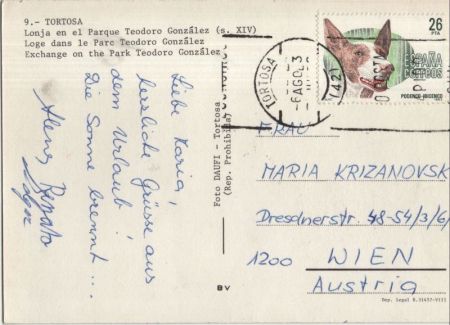 9.- TORTOSA
Lonja en el Parque Teodoro González (s. XIV)
Loge dans le Parc Teodoro González
Exchange on the Park Teodoro González
26
PTA
ESPAÑA
CORREOS
PODENCO IBICENCO
TORTOSA
6 AGO 83
(42)
Foto DAUFI - Tortosa
(Rep. Prohibida)
Liebe Maria,
herzliche Grüsse aus
dem Urlaub!
Die Sonne brennt...
Renato
FRAU
MARIA KRIZANOVSK
Dresdnerstr. 48-54/3/6/
1200 WIEN
Austria
BV
Dep. Legal B.31437-VIII